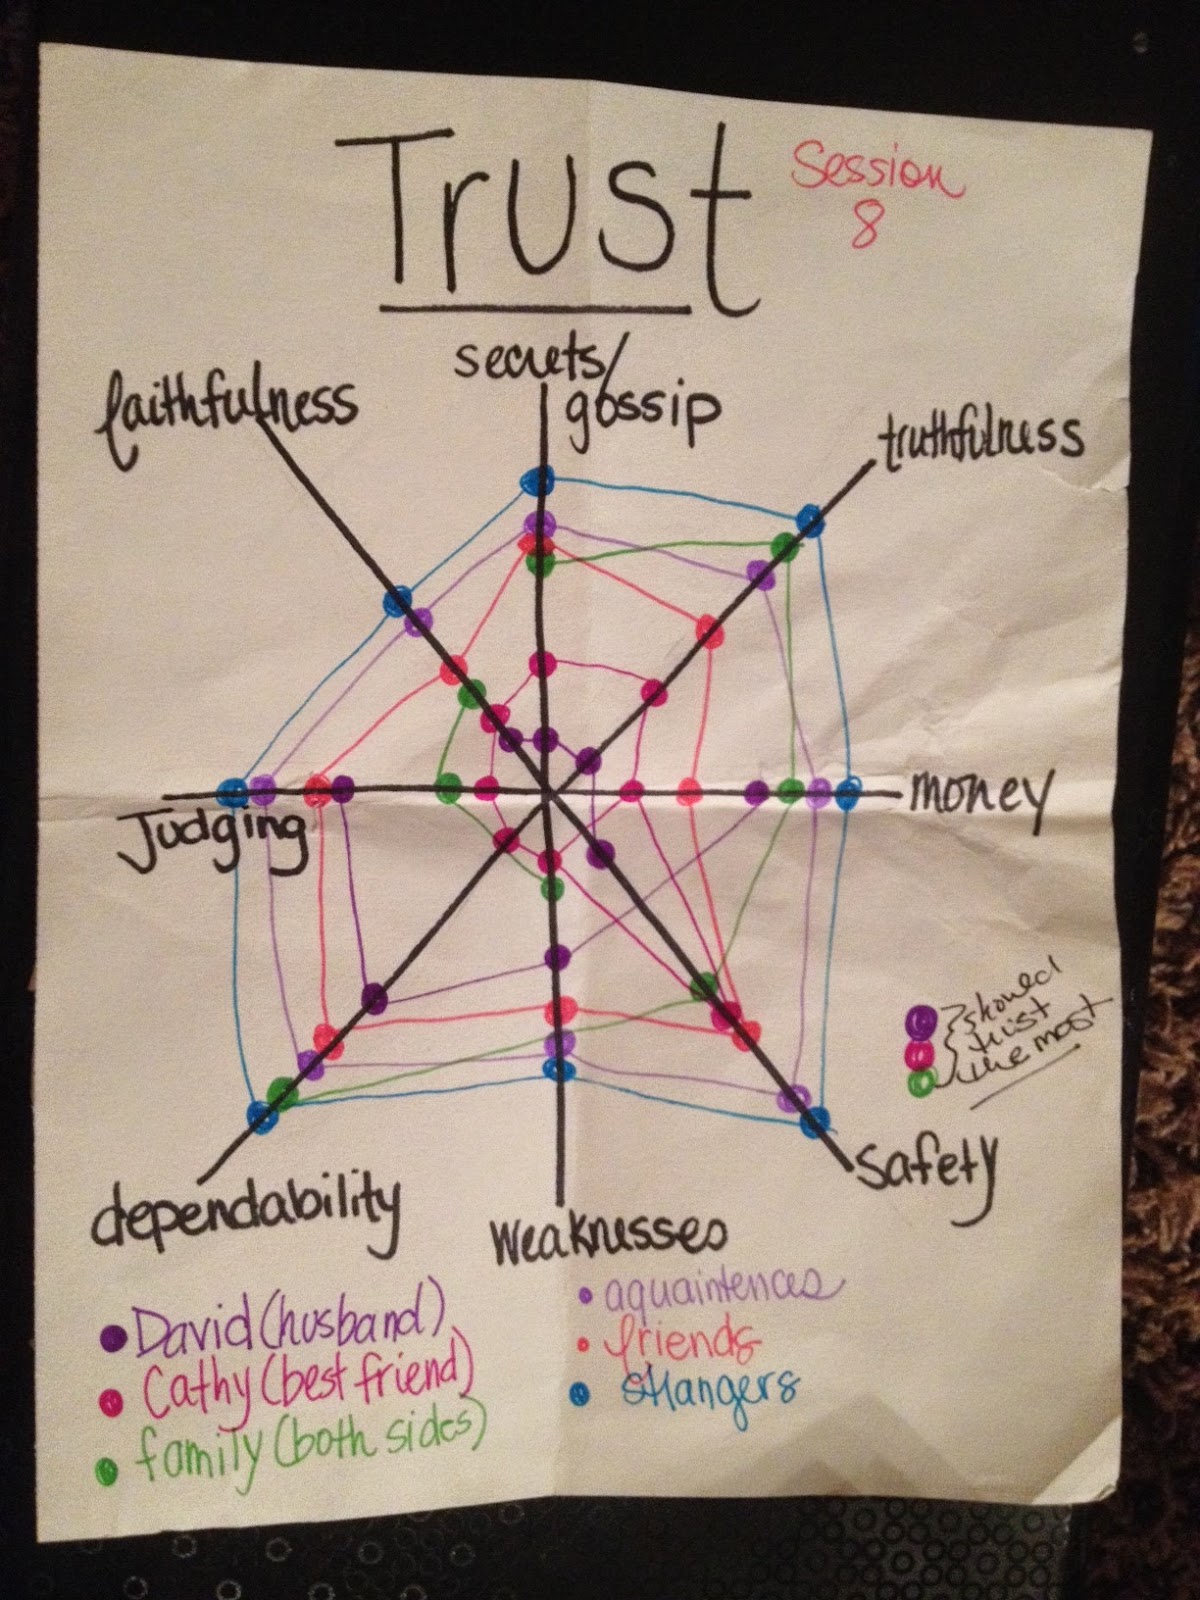 Trust
Session
8
secrets/
gossip
faithfulness
truthfulness
Judging
money
showed
trust
the most
safety
dependability
weaknesses
David (husband)
Cathy (best friend)
family (both sides)
aquaintences
friends
strangers